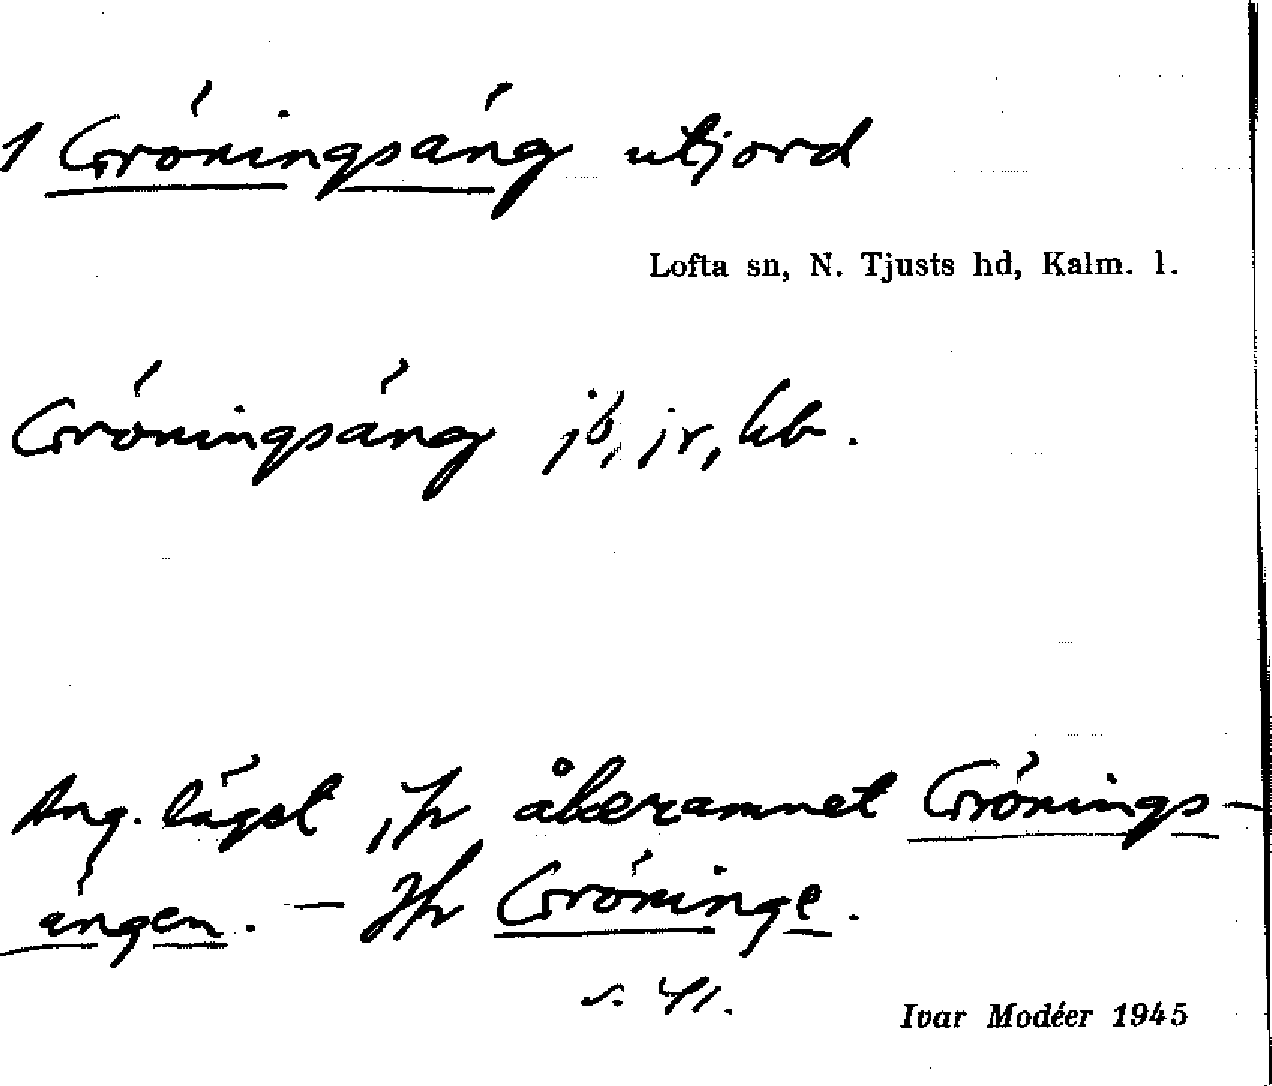 1 Gröningsäng utjord
Lofta sn, N. Tjusts hd, Kalm. l.
Gröningsäng jb, jr, kb.
Ang. läget jfr åkernamnet Grönings-
ängen. – Jfr Gröninge.
s. 41.
Ivar Modéer 1945